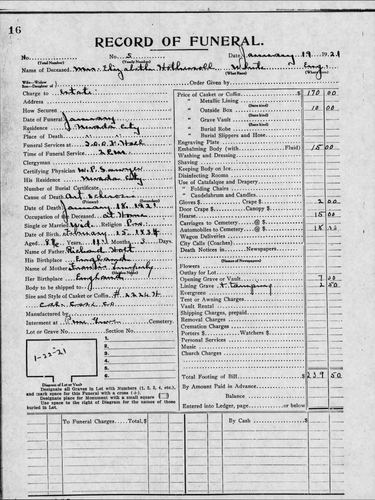 16
RECORD OF FUNERAL.
No. 5 Date January 19 1921
(Total Number) (Yearly Number)
Name of Deceased Mrs. Elizabeth White Eng.
(What Race) (Where Born)
Order Given by
Charge to estate
Address
How Secured
Date of Funeral January
Residence Nevada City
Place of Death
Funeral Services at I.O.O.F. Hall
Time of Funeral Service 2 P.M.
Clergyman
Certifying Physician W.P. Sawyer
His Residence Nevada City
Number of Burial Certificate
Cause of Death Art. Sclerosis
Date of Death January 18, 1921
Occupation of Deceased at Home
Single or Married Wid. Religion
Date of Birth 15, 1834
Aged 86 Years 11 Months 3 Days
Name of Father Richard
His Birthplace England
Name of Mother
Her Birthplace England
Body to be shipped to
Size and Style of Casket or Coffin
Manufactured by
Interment at Cemetery
Lot or Grave No. Section No.
1-22-21
1.
2.
3.
4.
5.
6.
Diagram of Lot or Vault
Designate all Graves in Lot with Numbers (1, 2, 3, 4, etc.),
and mark space for this Funeral with a cross (+)
Designate place for Monument with a small square
Use space to the right of Diagram for the names of those
buried in Lot.
Price of Casket or Coffin $ 170 00
" Metallic Lining
" Outside Box 10 00
" Grave Vault
" Burial Robe
" Burial Slippers and Hose
Engraving Plate
Embalming Body (with Fluid) 15 00
Washing and Dressing
Shaving
Keeping Body on Ice
Disinfecting Rooms
Use of Catafalque and Drapery
" Folding Chairs
" Candelabrum and Candles
Gloves $ Crape $ 2 00
Door Crape $ Canopy $
Hearse 15 00
Carriages to Cemetery @ $
Automobiles to Cemetery @ $ 18
Wagon Deliveries
City Calls (Coaches)
Death Notices in Newspapers
Flowers
Outlay for Lot
Opening Grave or Vault 7 00
Lining Grave + 2 50
Evergreen
Tent or Awning Charges
Vault Rental
Shipping Charges, prepaid
Removal Charges
Cremation Charges
Porters $ Watchers $
Personal Services
Music
Church Charges
Total Footing of Bill $ 239 50
By Amount Paid in Advance
Balance
Entered into Ledger, page or below
To Funeral Charges By Cash